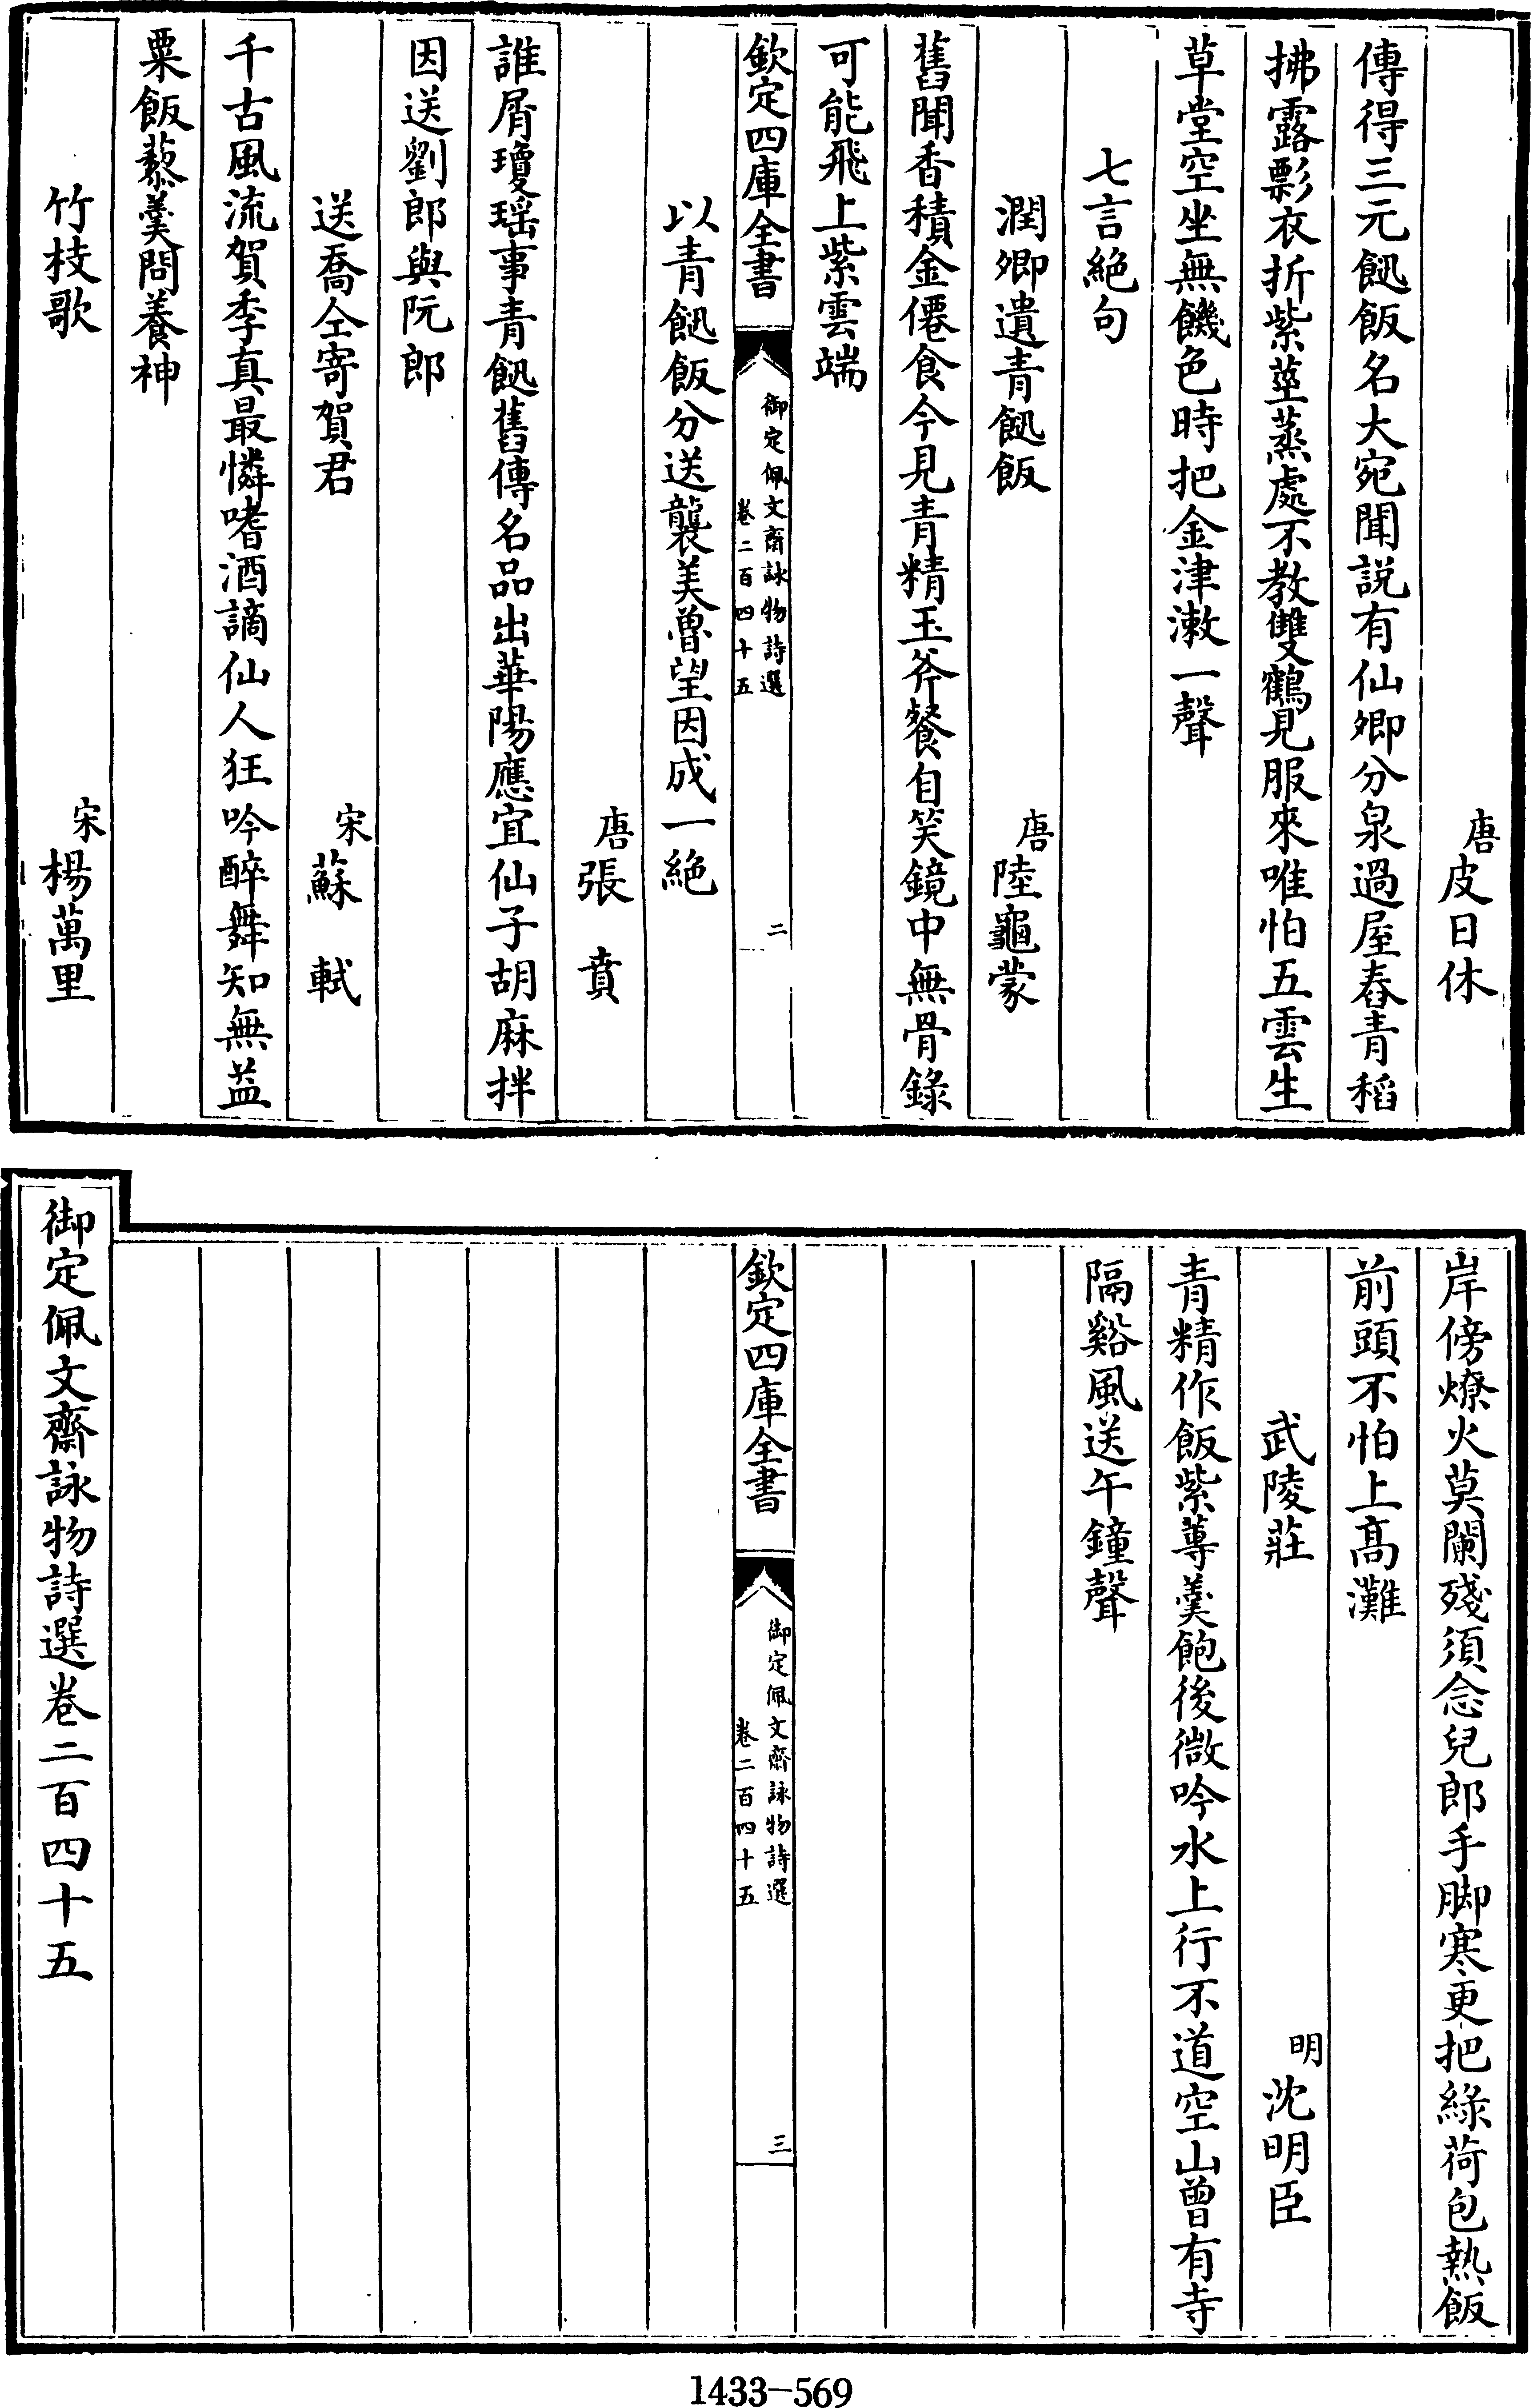 唐皮日休
傳得三元䬳飯名大宛聞説有仙卿分泉過屋舂青稻
拂露影衣折紫莖蒸處不教雙鶴見服來唯怕五雲生
草堂空坐無饑色時把金津漱一聲
七言絶句
潤卿遺青䬳飯
唐陸龜蒙
舊聞香積金僊食今見青精玉斧餐自笑鏡中無骨錄
可能飛上紫雲端
欽定四庫全書
御定佩文齋詠物詩選
卷二百四十五
二
以青䬳飯分送襲美魯望因成一絶
唐張賁
誰屑瓊瑶事青䬳舊傳名品出華陽應宜仙子胡麻拌
因送劉郎與阮郎
送喬仝寄賀君
宋蘇軾
千古風流賀季真最憐嗜酒謫仙人狂吟醉舞知無益
粟飯藜羹問養神
竹枝歌
宋楊萬里
岸傍燎火莫闌殘須念兒郎手脚寒更把綠荷包熱飯
前頭不怕上髙灘
武陵莊
明沈明臣
青精作飯紫蓴羹飽後微吟水上行不道空山曾有寺
隔谿風送午鐘聲
欽定四庫全書
御定佩文齋詠物詩選
卷二百四十五
三
御定佩文齋詠物詩選卷二百四十五
1433-569